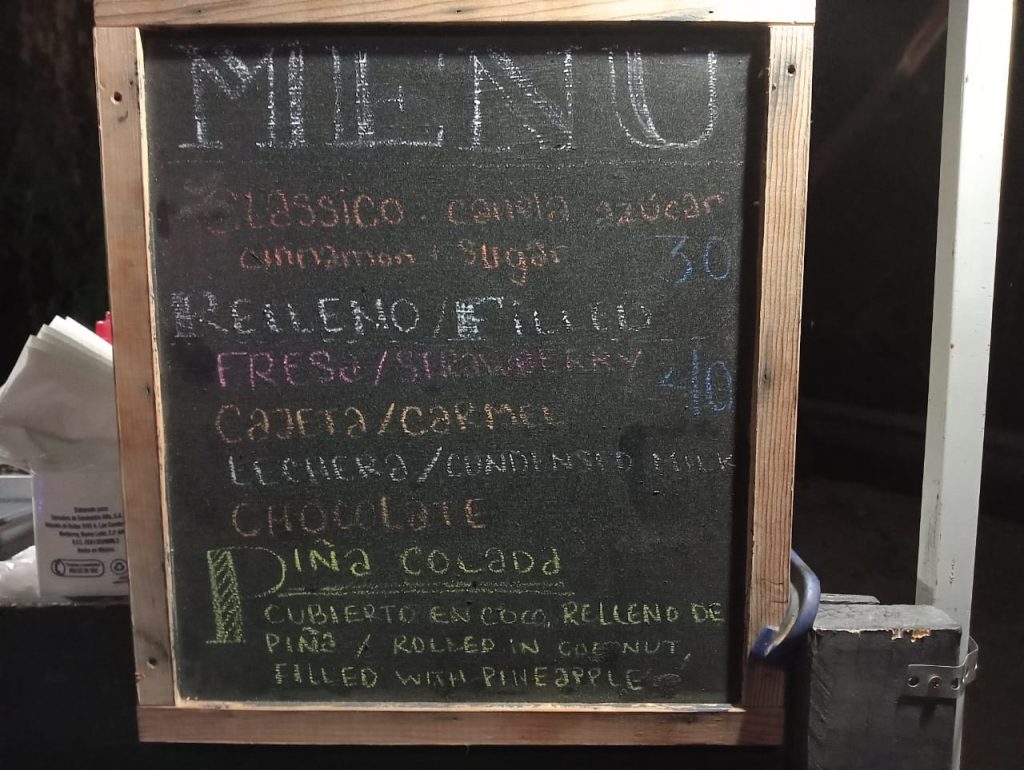 MENU
CLASSICO - canela azucar
cinnamon + sugar 30
RELLENO/FILLED
FRESA/STRAWBERRY 40
CAJETA/CARMEL
LECHERA/CONDENSED MILK
CHOCOLATE
PIÑA COLADA
CUBIERTO EN COCO, RELLENO DE
PIÑA / ROLLED IN COCONUT,
FILLED WITH PINEAPPLE
Elaborado para:
Hecho en México